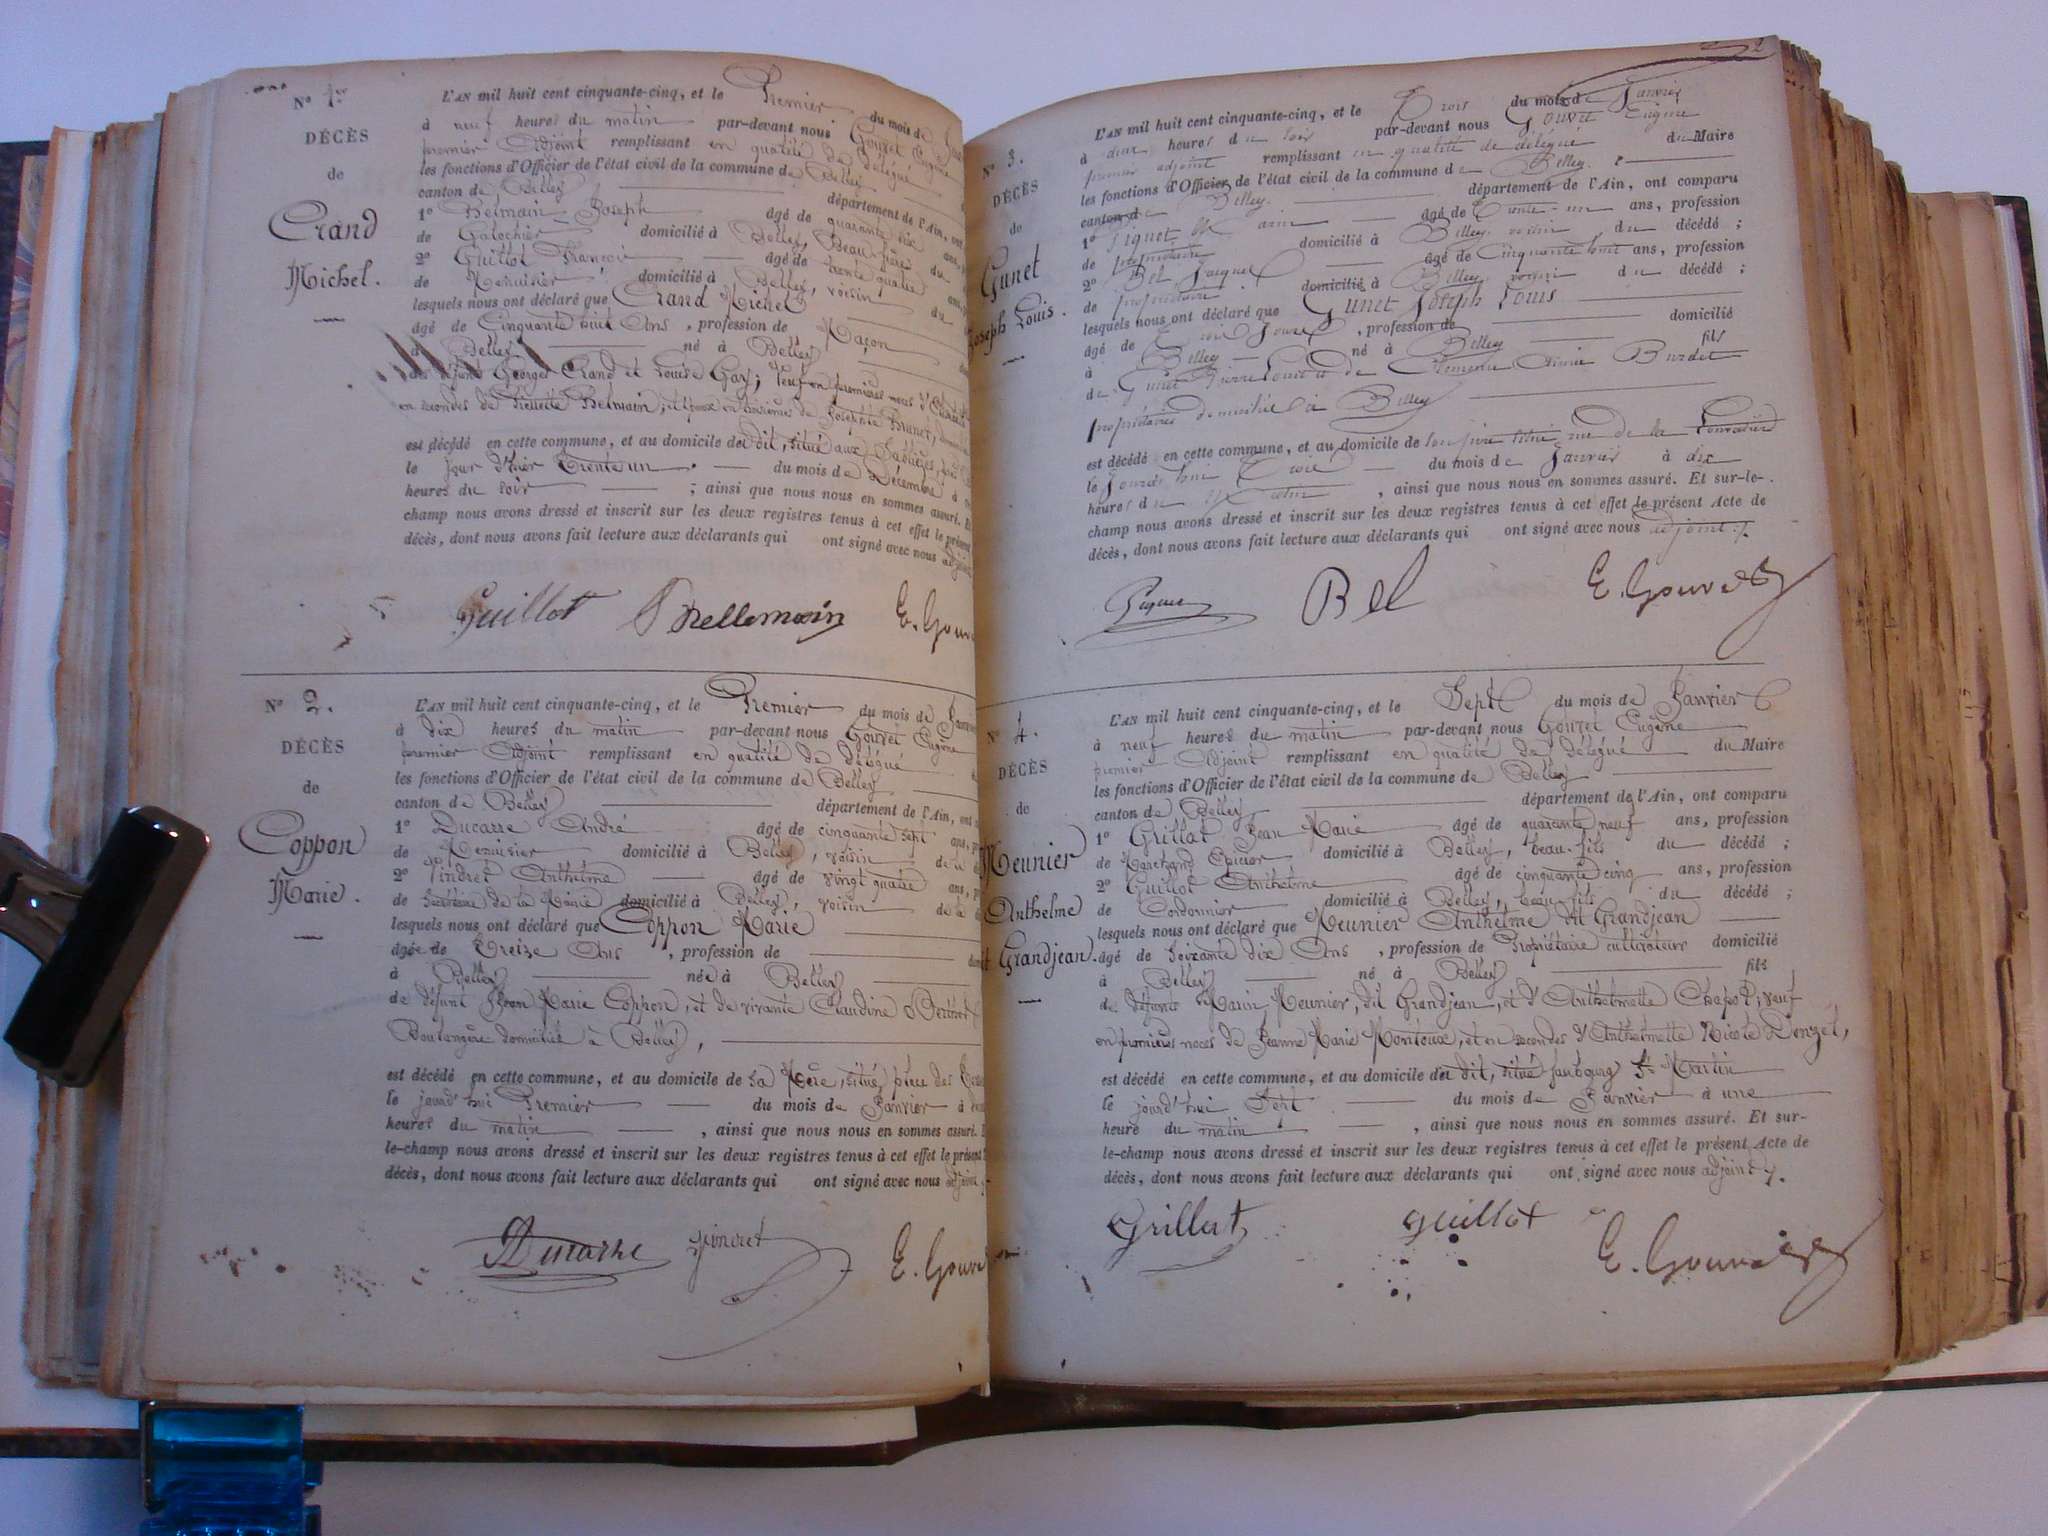 N° 1er
DÉCÈS
de
Crand
Michel.
L'AN mil huit cent cinquante-cinq, et le Premier du mois de
à neuf heures du matin par-devant nous Gouvet Eugène
premier Adjoint remplissant en qualité de délégué
les fonctions d'Officier de l'état civil de la commune de Belley
canton de Belley département de l'Ain, ont
1° Belmain Joseph âgé de quarante six ans
de Galochier domicilié à Belley, Beau-frère du
2° Guillot François âgé de trente quatre ans
de Menuisier domicilié à Belley, voisin du
lesquels nous ont déclaré que Crand Michel
âgé de Cinquante huit Ans, profession de Maçon
à Belley né à Belley
Georges Crand et Louise Gay; Veuf en premières noces d'
en secondes de Belmain, et époux en troisièmes de Josephte Brunet,
est décédé en cette commune, et au domicile du dit, situé aux Sablières,
le jour d'hier Trente un du mois de Décembre à
heures du soir ; ainsi que nous nous en sommes assuré. Et
champ nous avons dressé et inscrit sur les deux registres tenus à cet effet le présent
décès, dont nous avons fait lecture aux déclarants qui ont signé avec nous adjoint
Guillot Bellemain E. Gouv
N° 2.
DÉCÈS
de
Coppon
Marie.
L'AN mil huit cent cinquante-cinq, et le Premier du mois de Janvier
à dix heures du matin par-devant nous Gouvet Eugène
premier Adjoint remplissant en qualité de délégué
les fonctions d'Officier de l'état civil de la commune de Belley
canton de Belley département de l'Ain, ont
1° Ducarre André âgé de cinquante sept ans,
de Menuisier domicilié à Belley, voisin de la
2° Pindret Anthelme âgé de vingt quatre ans,
de Secrétaire de la Mairie domicilié à Belley, voisin de la
lesquels nous ont déclaré que Coppon Marie
âgée de Treize Ans, profession de
à Belley née à Belley
de défunt Jean Marie Coppon, et de vivante Claudine
Boulangère domiciliée à Belley,
est décédé en cette commune, et au domicile de sa Mère, situé place des
le jourd'hui Premier du mois de Janvier à
heures du matin , ainsi que nous nous en sommes assuré.
le-champ nous avons dressé et inscrit sur les deux registres tenus à cet effet le présent
décès, dont nous avons fait lecture aux déclarants qui ont signé avec nous adjoint
Ducarre Pindret E. Gouv
2
N° 3.
DÉCÈS
de
Gunet
Joseph Louis.
L'AN mil huit cent cinquante-cinq, et le Trois du mois de Janvier
à deux heures du soir par-devant nous Gouvet Eugène
premier adjoint remplissant en qualité de délégué du Maire
les fonctions d'Officier de l'état civil de la commune de Belley
canton de Belley département de l'Ain, ont comparu
1° Piquet âgé de Trente-un ans, profession
de propriétaire domicilié à Belley voisin du décédé ;
2° Bel Jacques âgé de Cinquante huit ans, profession
de propriétaire domicilié à Belley voisin du décédé ;
lesquels nous ont déclaré que Gunet Joseph Louis
âgé de Trois Jours, profession de domicilié
à Belley né à Belley fils
de Gunet Pierre Louis et de Aimée Burdet
propriétaires domiciliés à Belley
est décédé en cette commune, et au domicile de son père situé rue de la
le Jourd'hui Trois du mois de Janvier à dix
heures du Matin , ainsi que nous nous en sommes assuré. Et sur-le-
champ nous avons dressé et inscrit sur les deux registres tenus à cet effet le présent Acte de
décès, dont nous avons fait lecture aux déclarants qui ont signé avec nous adjoint.
Piquet Bel E. Gouvet
N° 4.
DÉCÈS
de
Meunier
Anthelme
dit Grandjean.
L'AN mil huit cent cinquante-cinq, et le Sept du mois de Janvier
à neuf heures du matin par-devant nous Gouvet Eugène
premier Adjoint remplissant en qualité de délégué du Maire
les fonctions d'Officier de l'état civil de la commune de Belley
canton de Belley département de l'Ain, ont comparu
1° Grillat Jean Marie âgé de quarante neuf ans, profession
de Marchand Epicier domicilié à Belley, beau-fils du décédé ;
2° Guillot Anthelme âgé de cinquante cinq ans, profession
de Cordonnier domicilié à Belley, beau-fils du décédé ;
lesquels nous ont déclaré que Meunier Anthelme dit Grandjean
âgé de Soixante dix Ans, profession de Propriétaire cultivateur domicilié
à Belley né à Belley fils
de défunts Marin Meunier, dit Grandjean, et d'Anthelmette Chapot; veuf
en premières noces de Jeanne Marie Montoux, et en secondes d'Anthelmette Nicole Donzel,
est décédé en cette commune, et au domicile du dit, situé faubourg St Martin
le jourd'hui Sept du mois de Janvier à une
heure du matin , ainsi que nous nous en sommes assuré. Et sur-
le-champ nous avons dressé et inscrit sur les deux registres tenus à cet effet le présent Acte de
décès, dont nous avons fait lecture aux déclarants qui ont signé avec nous adjoint.
Grillat guillot E. Gouvet